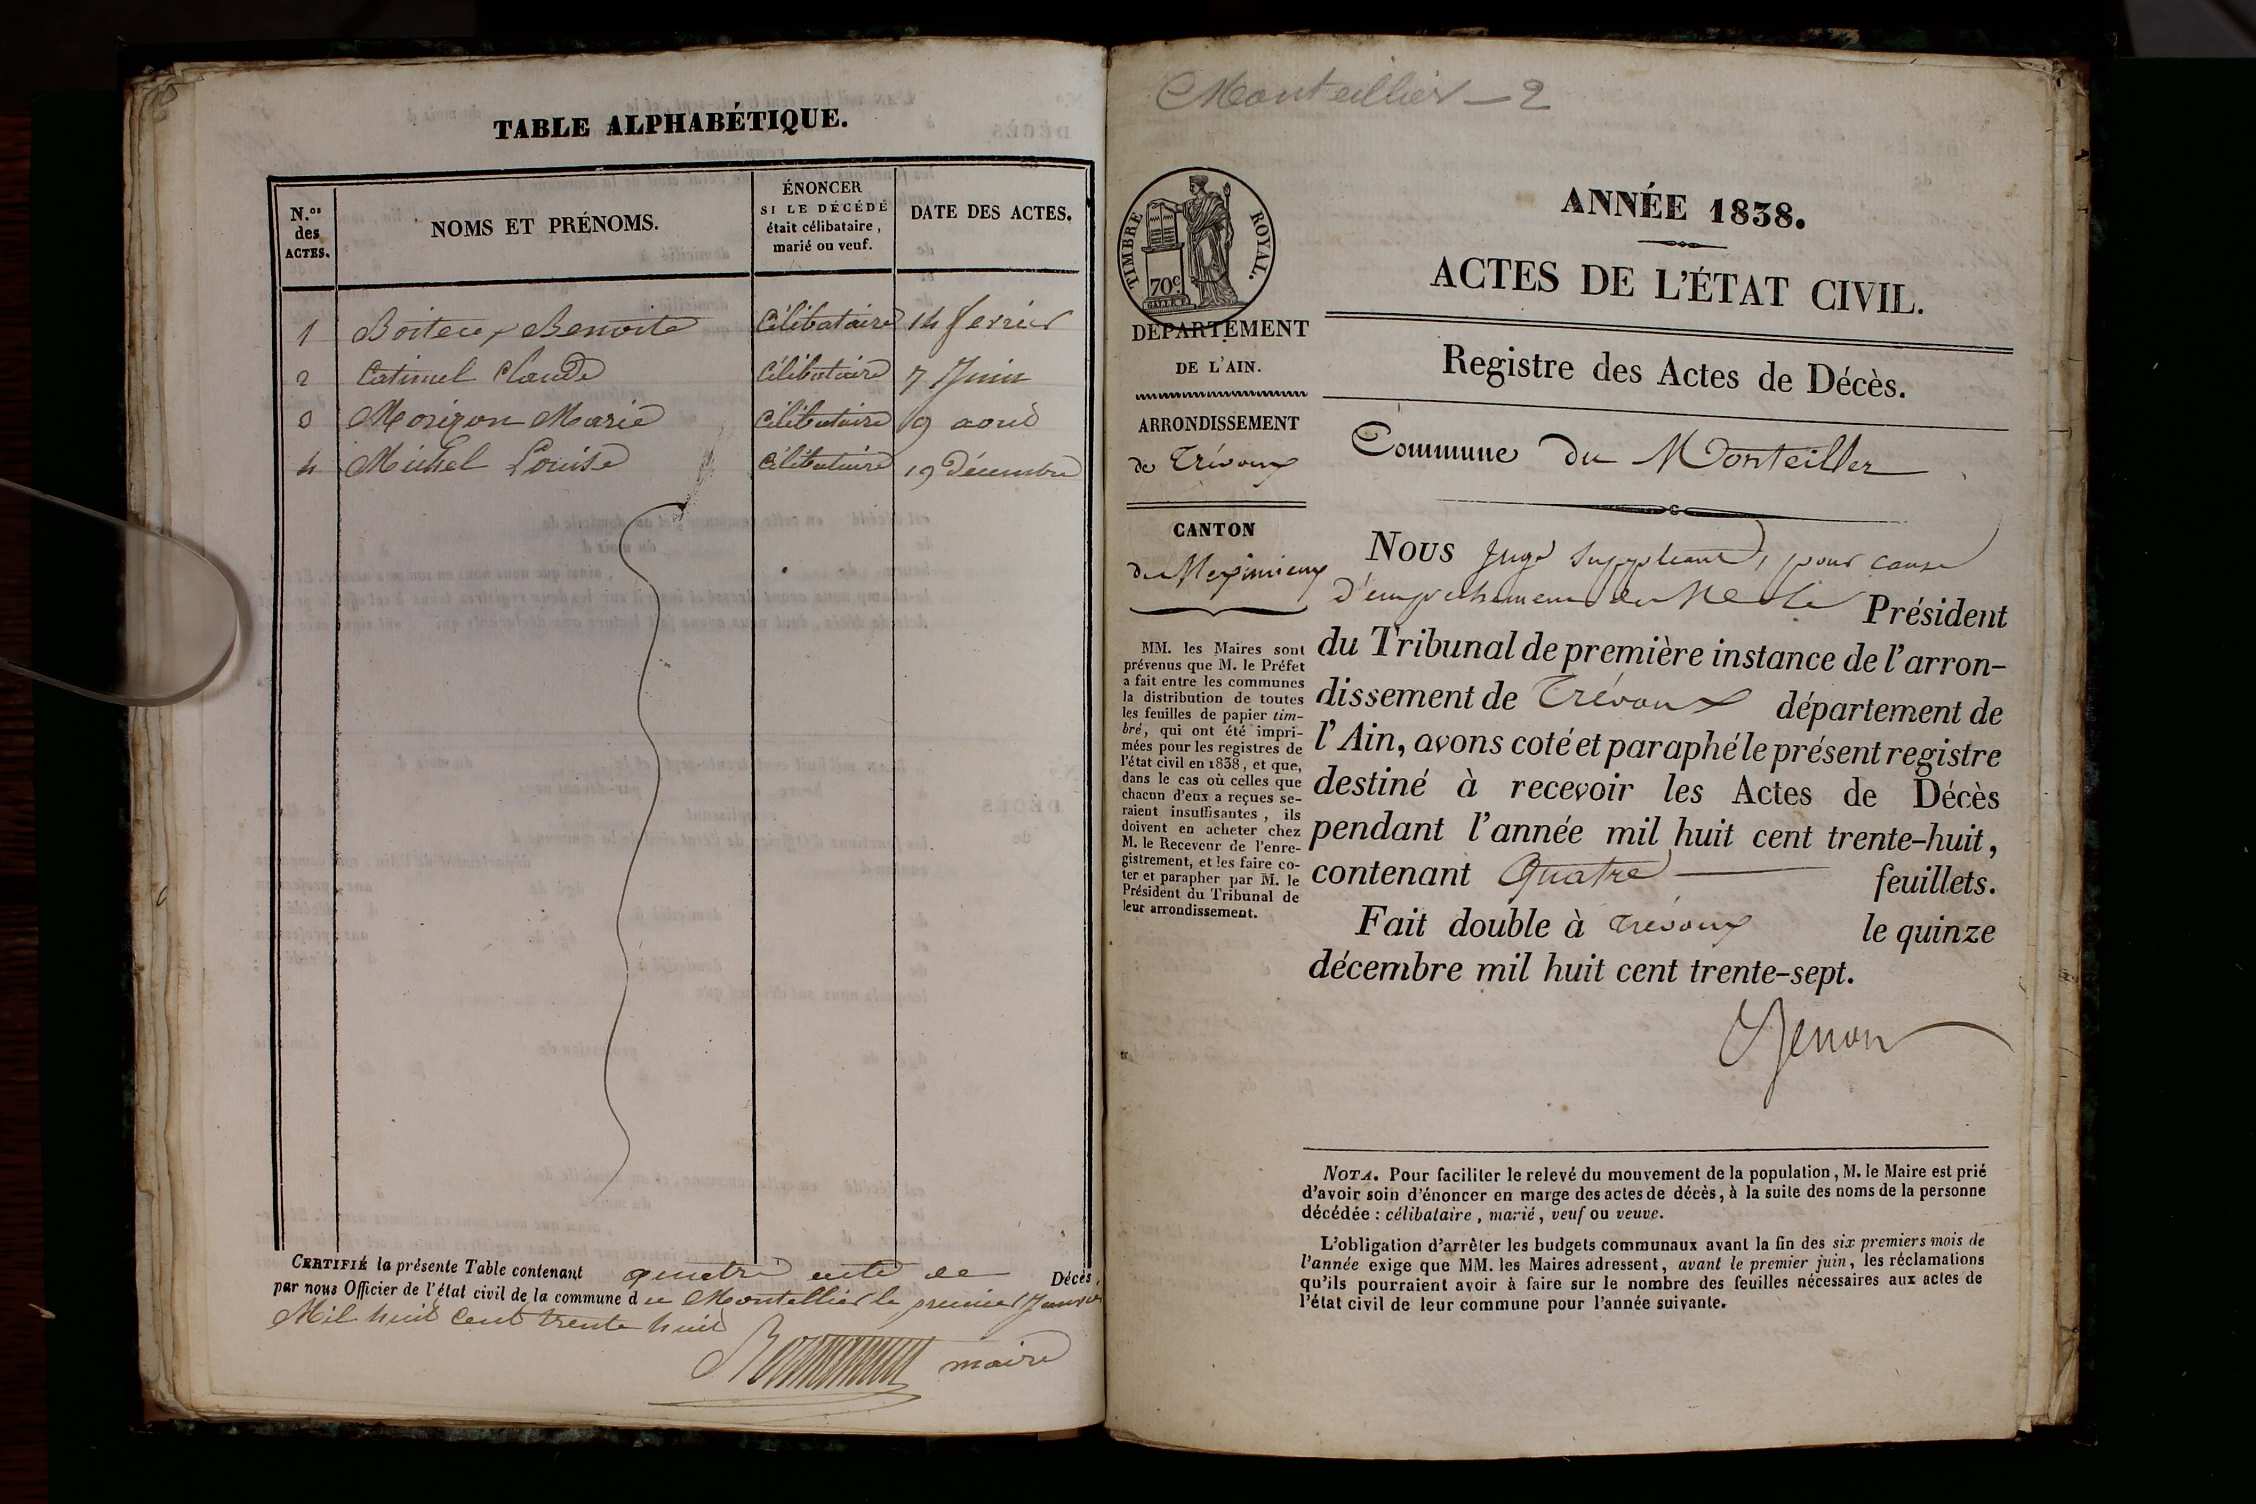 TABLE ALPHABÉTIQUE.
N.os des ACTES.
NOMS ET PRÉNOMS.
ÉNONCER
SI LE DÉCÉDÉ
était célibataire,
marié ou veuf.
DATE DES ACTES.
1 Boiteux Benoite Célibataire 14 fevrier
2 Catimel Claude Célibataire 7 Juin
3 Marie Célibataire 9 aout
4 Michel Louise Célibataire 19 Décembre
CERTIFIÉ la présente Table contenant quatre acte de Décès,
par nous Officier de l'état civil de la commune du Montellier le premier Janvier
Mil huit Cent trente huit
maire
Monteillier - 2
TIMBRE ROYAL.
70c.
DÉPARTEMENT
DE L'AIN.
ARRONDISSEMENT
de Trévoux
CANTON
de Meximieux
MM. les Maires sont
prévenus que M. le Préfet
a fait entre les communes
la distribution de toutes
les feuilles de papier tim-
bré, qui ont été impri-
mées pour les registres de
l'état civil en 1838, et que,
dans le cas où celles que
chacun d'eux a reçues se-
raient insuffisantes, ils
doivent en acheter chez
M. le Receveur de l'enre-
gistrement, et les faire co-
ter et parapher par M. le
Président du Tribunal de
leur arrondissement.
ANNÉE 1838.
ACTES DE L'ÉTAT CIVIL.
Registre des Actes de Décès.
Commune du Monteiller
Nous Juge Suppléant, pour cause
d'empêchement de M. le Président
du Tribunal de première instance de l'arron-
dissement de Trévoux département de
l'Ain, avons coté et paraphé le présent registre
destiné à recevoir les Actes de Décès
pendant l'année mil huit cent trente-huit,
contenant Quatre feuillets.
Fait double à Trévoux le quinze
décembre mil huit cent trente-sept.
NOTA. Pour faciliter le relevé du mouvement de la population, M. le Maire est prié
d'avoir soin d'énoncer en marge des actes de décès, à la suite des noms de la personne
décédée : célibataire, marié, veuf ou veuve.
L'obligation d'arrêter les budgets communaux avant la fin des six premiers mois de
l'année exige que MM. les Maires adressent, avant le premier juin, les réclamations
qu'ils pourraient avoir à faire sur le nombre des feuilles nécessaires aux actes de
l'état civil de leur commune pour l'année suivante.